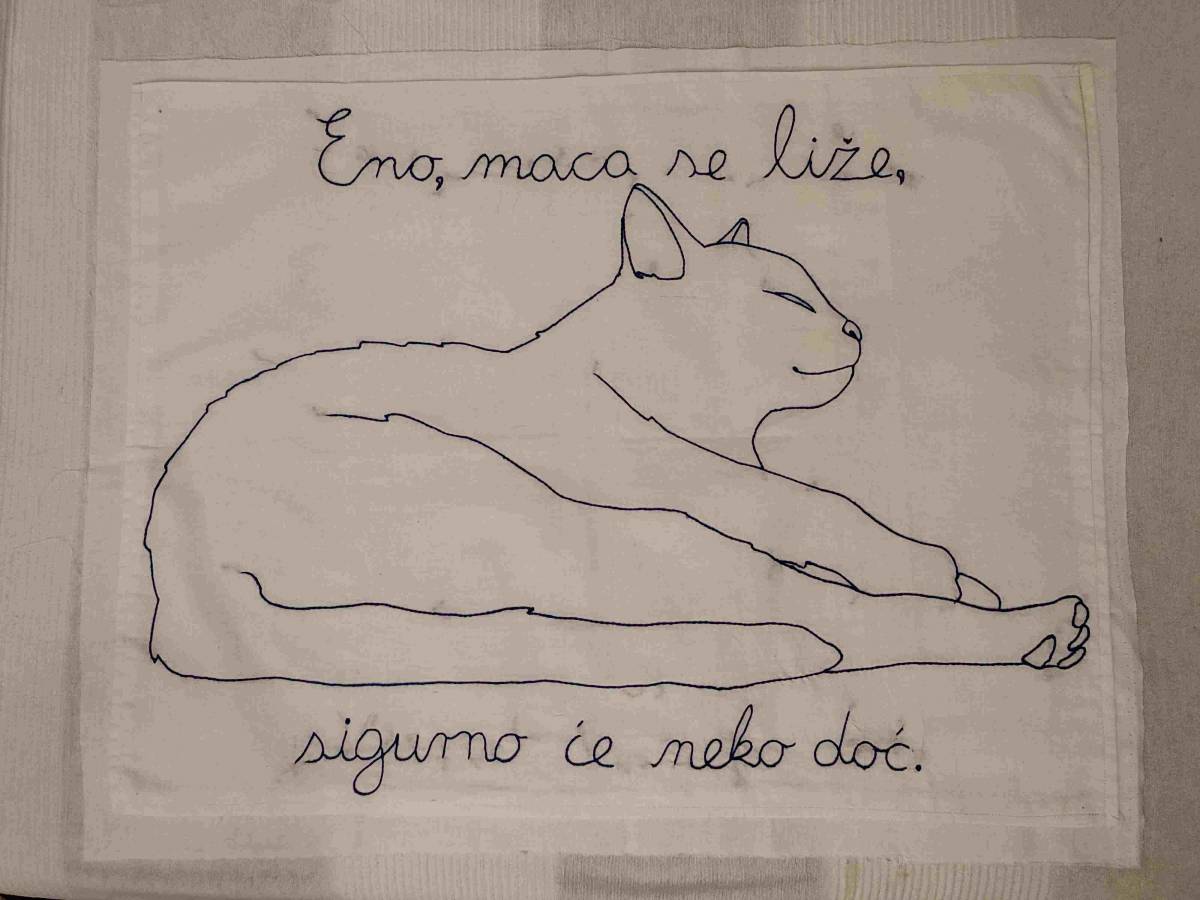 Eno, maca se liže,
sigurno će neko doć.